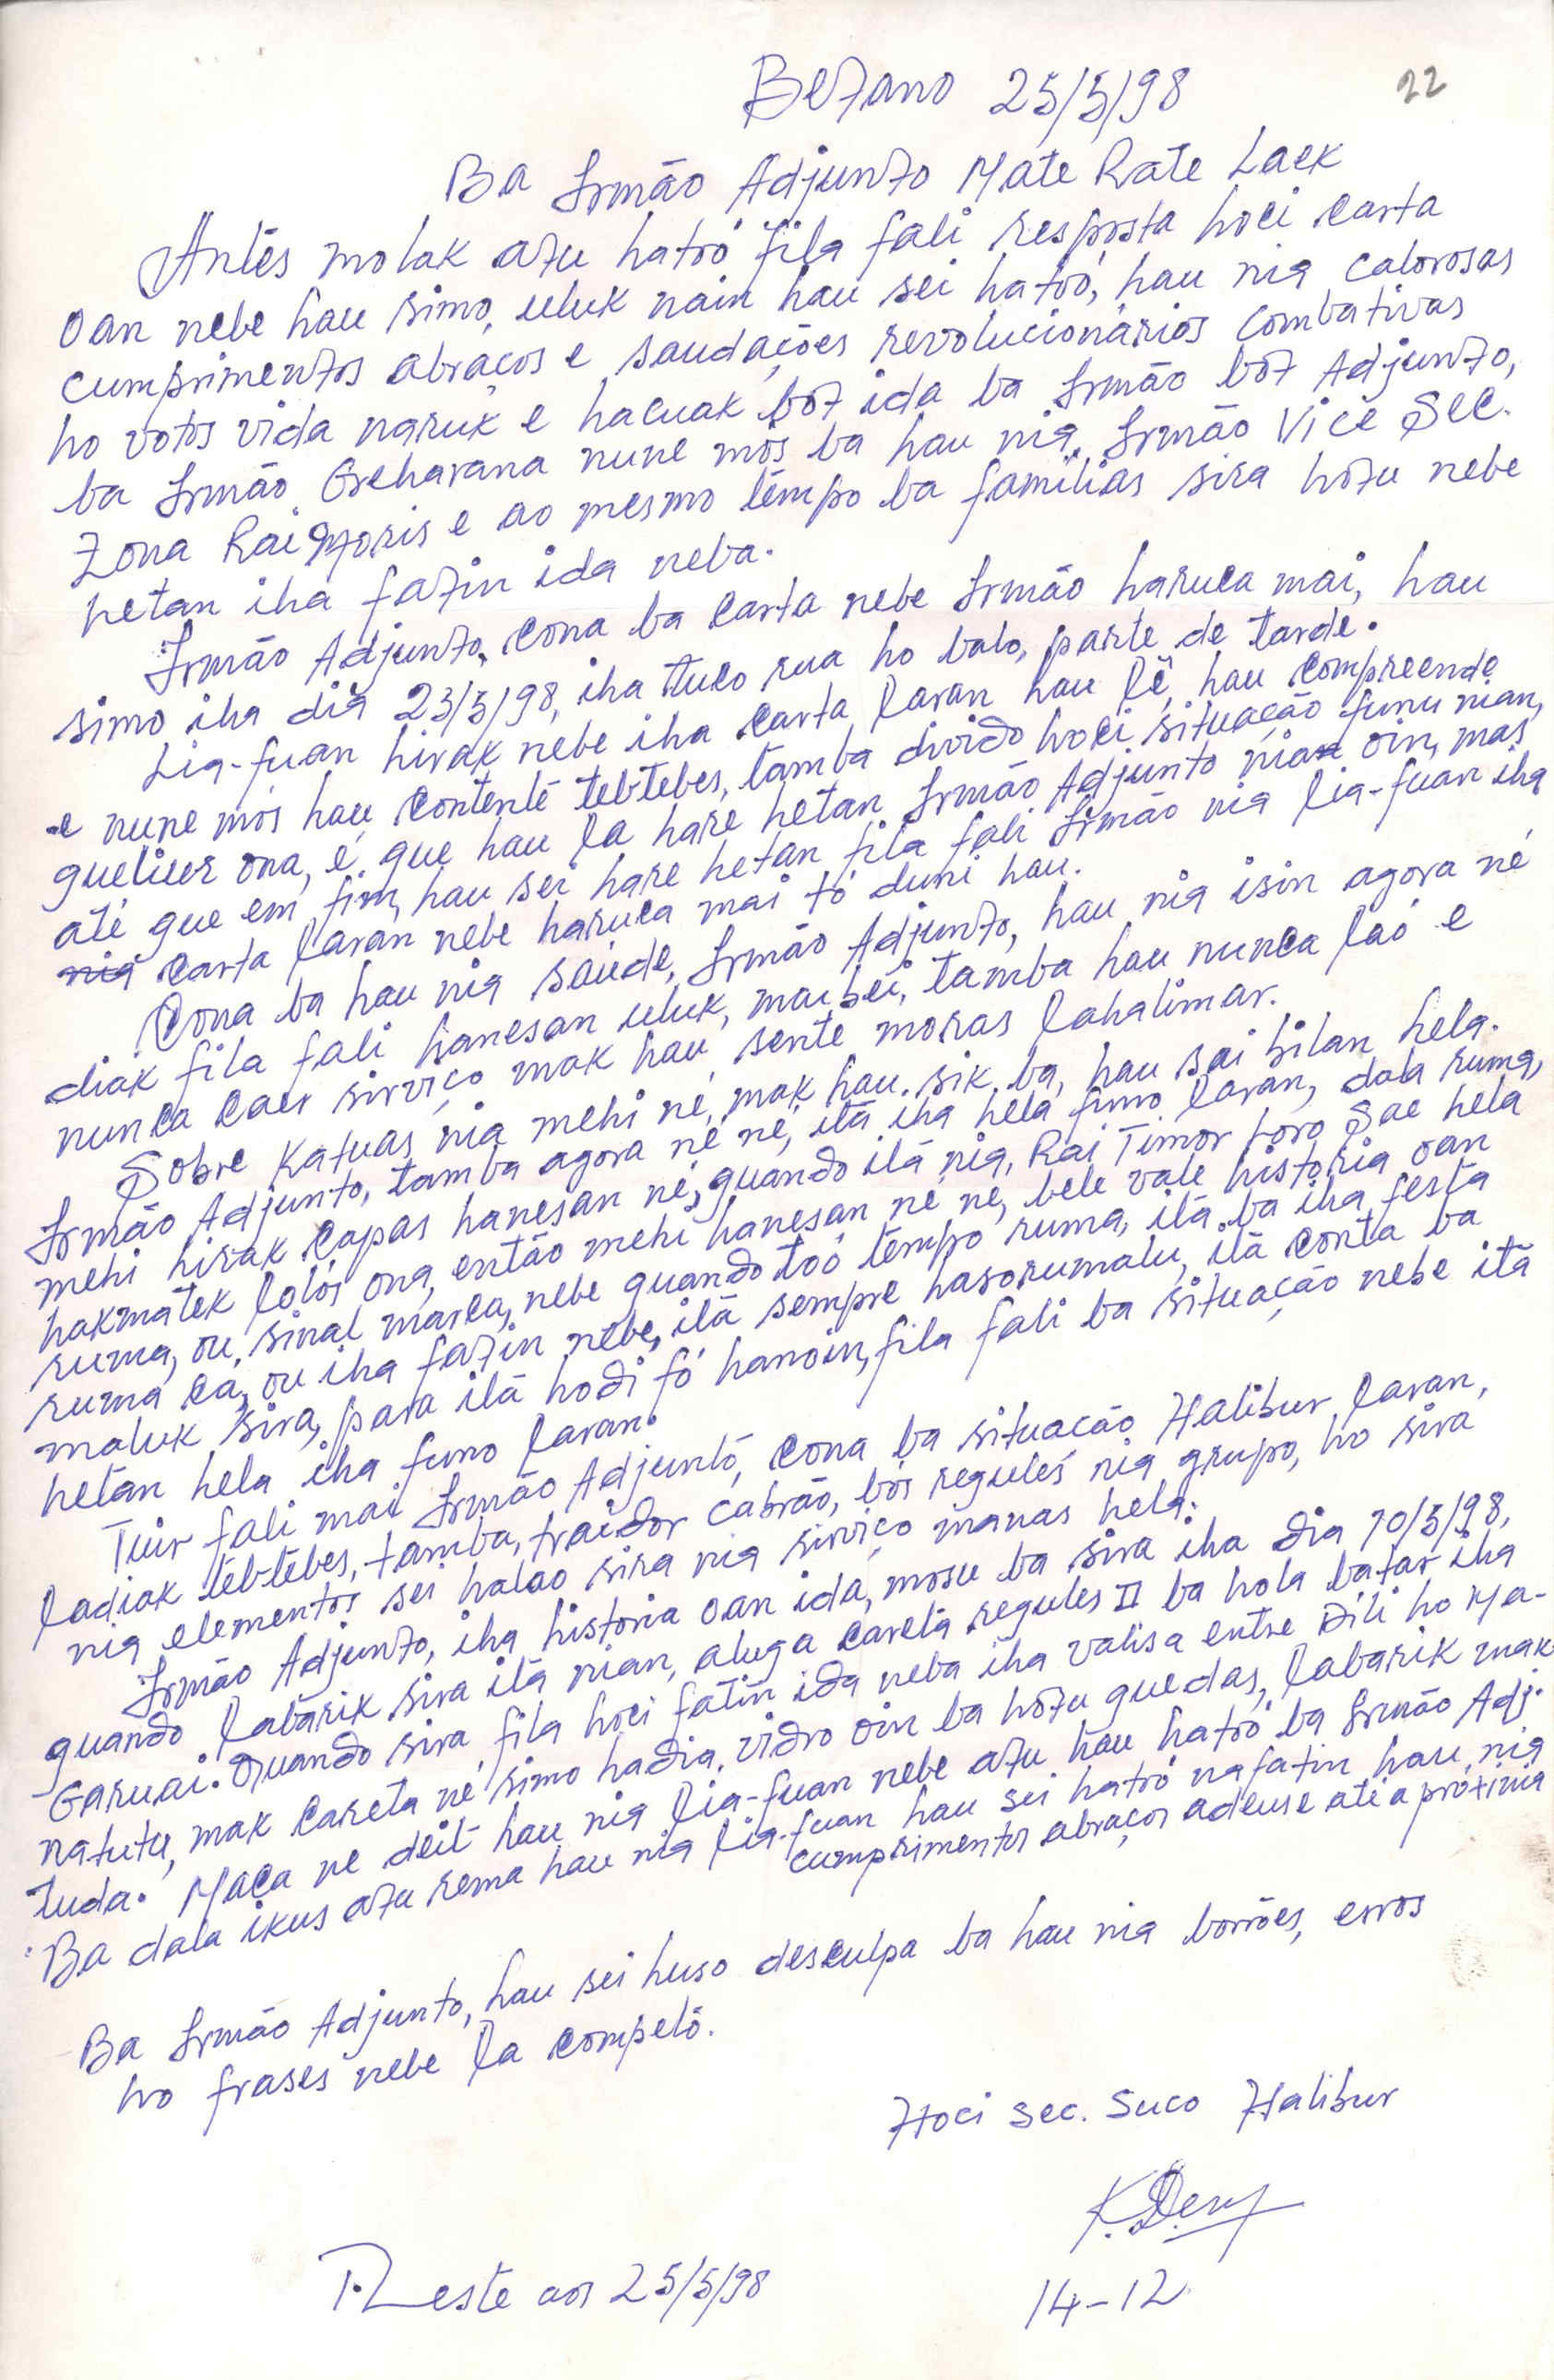 Betano 25/5/98
22
Ba Irmão Adjunto Mate Rate Laek
Antes molak atu hatró fila fali resposta hoci carta
oan nebe hau simo, uluk nain hau sei hatóó, hau nia calorosas
cumprimentos abraços e saudações revolucionários combativas
ho votos vida naruk e hacuak bot ida ba Irmão bot Adjunto,
ba Irmão nune mos ba hau nia Irmão Vice Sec.
Zona Rai Moris e ao mesmo tempo ba familias sira hotu nebe
hetan iha fatin ida neba.
Irmão Adjunto, cona ba carta nebe Irmão haruca mai, hau
simo iha dia 23/5/98, iha tuco rua ho balo, parte de tarde.
Lia-fuan hirak nebe iha carta laran hau lê, hau compreende
e nune mos hau contente tebtebes, tamba divido hoci situação funu nian,
queliuer ona, é que hau la hare hetan Irmão Adjunto nia oin, mas
até que em fim, hau sei hare hetan fila fali Irmão nia lia-fuan iha
nia carta laran nebe haruca mai tó duni hau.
Cona ba hau nia saúde, Irmão Adjunto, hau nia isin agora né
diak fila fali hanesan uluk, maibei, tamba hau nunca laó e
nunca caer sirviço mak hau sente moras lahalimar.
Sobre Katuas nia mehi né, mak hau sik ba, hau sai bilan hela.
Irmão Adjunto, tamba agora né né, itá iha hela funo laran, dala ruma,
mehi hirak capas hanesan né, quando itá nia, Rai Timor toro Sae hela
hakmatek lolós ona, então mehi hanesan né né, bele vale historia oan
ruma, ou, sinal marca, nebe quando tóó tempo ruma, itá ba iha festa
ruma ca, ou iha fatin nebe, itá sempre hasorumalu, itá conta ba
maluk sira, para itá hodi fó hanoin, fila fali ba situação nebe itá
hetan hela iha funo laran.
Tuir fali mai Irmão Adjunto, cona ba situacão Halibur laran,
ladiak tebtebes, tamba, traidor cabrão, bós regulés nia grupo, ho sira
nia elementos sei halao sira nia sirviço manas hela.
Irmão Adjunto, iha historia oan ida, mosu ba sira iha dia 10/5/98,
quando labarik sira itá nian, aluga careta regules II ba hola batar iha
Garuai. Quando sira fila hoci fatin ida neba iha valisa entre Dili ho Ma-
natutu, mak careta né simo hadia vidro oin ba hotu guedas, labarik mak
tuda. Maca ne deit hau nia lia-fuan nebe atu hau hatóó ba Irmão Adj.
Ba dala ikus atu rema hau nia lia-fuan hau sei hatró nafatin hau nia
cumprimentos abraços adeus e até a próxima
Ba Irmão Adjunto, hau sei huso desculpa ba hau nia borrões, erros
ho frases nebe la competô.
Hoci Sec. Suco Halibur
14-12
Reste aos 25/5/98